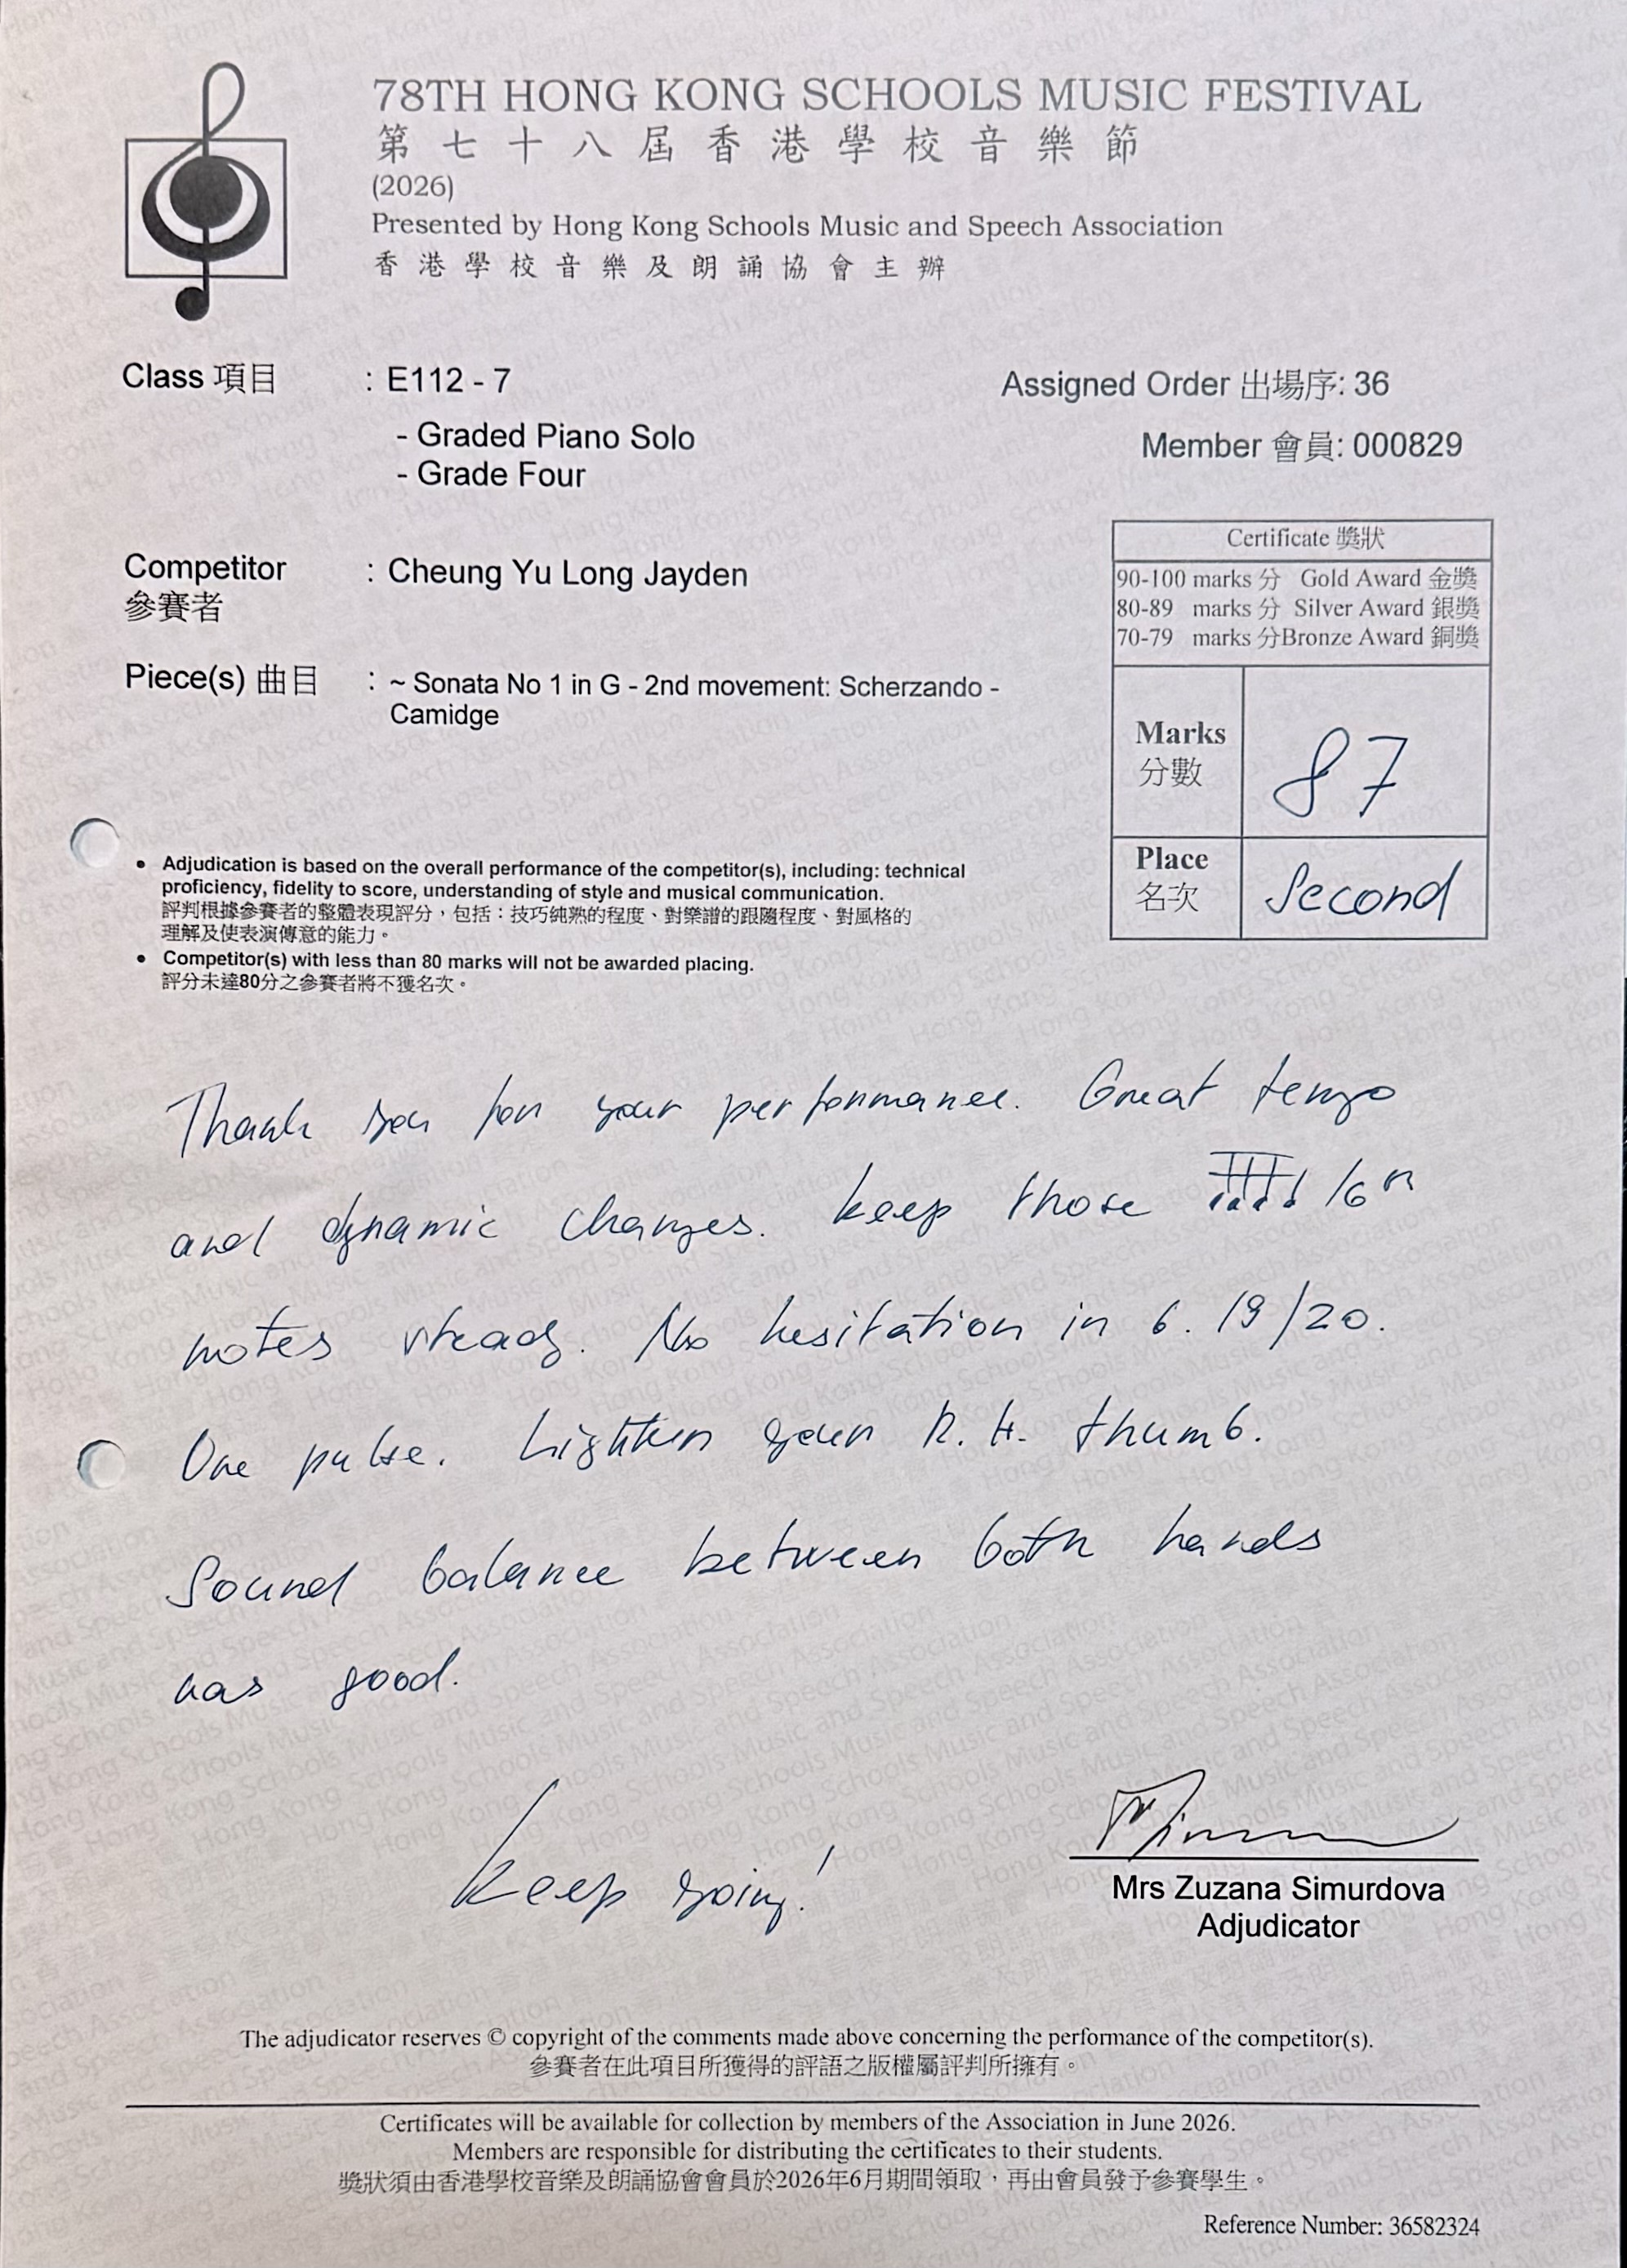 78TH HONG KONG SCHOOLS MUSIC FESTIVAL
第七十八屆香港學校音樂節
(2026)
Presented by Hong Kong Schools Music and Speech Association
香港學校音樂及朗誦協會主辦
Class 項目 : E112 - 7
Assigned Order 出場序: 36
- Graded Piano Solo
Member 會員: 000829
- Grade Four
Certificate 獎狀
90-100 marks 分 Gold Award 金獎
80-89 marks 分 Silver Award 銀獎
70-79 marks 分Bronze Award 銅獎
Competitor : Cheung Yu Long Jayden
參賽者
Piece(s) 曲目 : ~ Sonata No 1 in G - 2nd movement: Scherzando -
Camidge
Marks 87
分數
Place Second
名次
• Adjudication is based on the overall performance of the competitor(s), including: technical
proficiency, fidelity to score, understanding of style and musical communication.
評判根據參賽者的整體表現評分，包括：技巧純熟的程度、對樂譜的跟隨程度、對風格的
理解及使表演傳意的能力。
• Competitor(s) with less than 80 marks will not be awarded placing.
評分未達80分之參賽者將不獲名次。
Thank you for your performance. Great tempo
and dynamic changes. Keep those 16th
notes steady. No hesitation in b. 19/20.
One pulse. Lighten your R. H. thumb.
Sound balance between both hands
was good.
Keep going!
Mrs Zuzana Simurdova
Adjudicator
The adjudicator reserves © copyright of the comments made above concerning the performance of the competitor(s).
參賽者在此項目所獲得的評語之版權屬評判所擁有。
Certificates will be available for collection by members of the Association in June 2026.
Members are responsible for distributing the certificates to their students.
獎狀須由香港學校音樂及朗誦協會會員於2026年6月期間領取，再由會員發予參賽學生。
Reference Number: 36582324